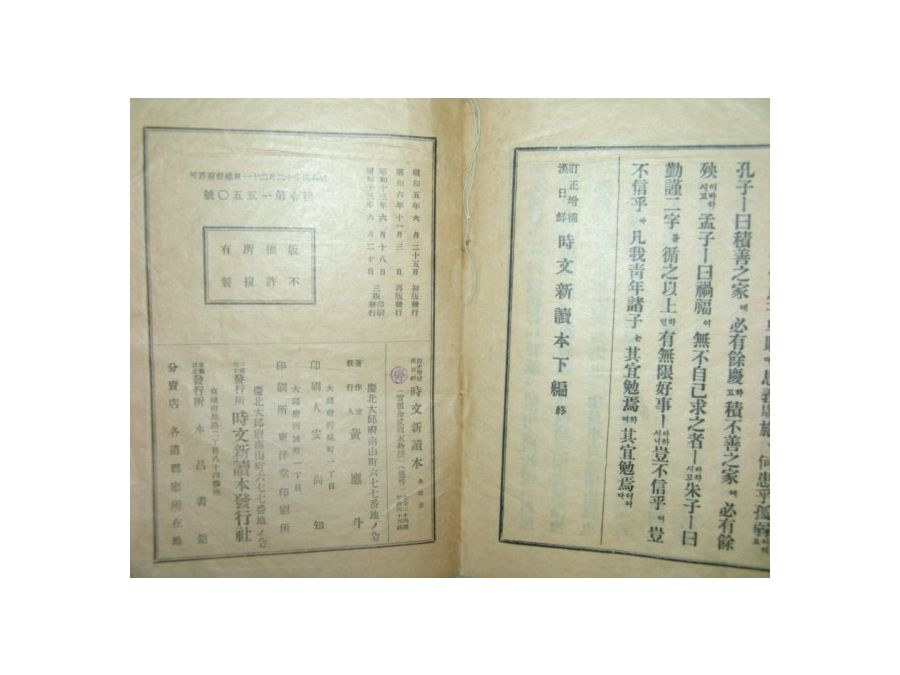 孔子ㅣ曰積善之家에必有餘慶하고積不善之家에必有餘
殃이라하시고孟子ㅣ曰禍福이無不自己求之者ㅣ라하시고朱子ㅣ曰
勤謹二字를循之以上하면有無限好事ㅣ라하시니豈不信乎이豈
不信乎아凡我靑年諸子는其宜勉焉하며其宜勉焉이어다
訂正增補
漢日鮮
時文新讀本下編 終
昭和五年六月二十五日 初版發行
昭和六年十一月三日 再版發行
昭和十三年六月十八日 三版印刷
昭和十三年六月二十日 三版發行
許可第一五五〇號
版權所有
不許複製
時文新讀本
慶北大邱府南山町六七七番地ノ
著作兼發行人 黃應斗
大邱府西城町一丁目
印刷人 安尙
大邱府西城町一丁目
印刷所 東洋堂印刷所
慶北大邱府南山町六七七番地ノ
發行所 時文新讀本發行社
二丁目八十四番地
發行所 永昌書館
分賣店 各道鄕廳所在地